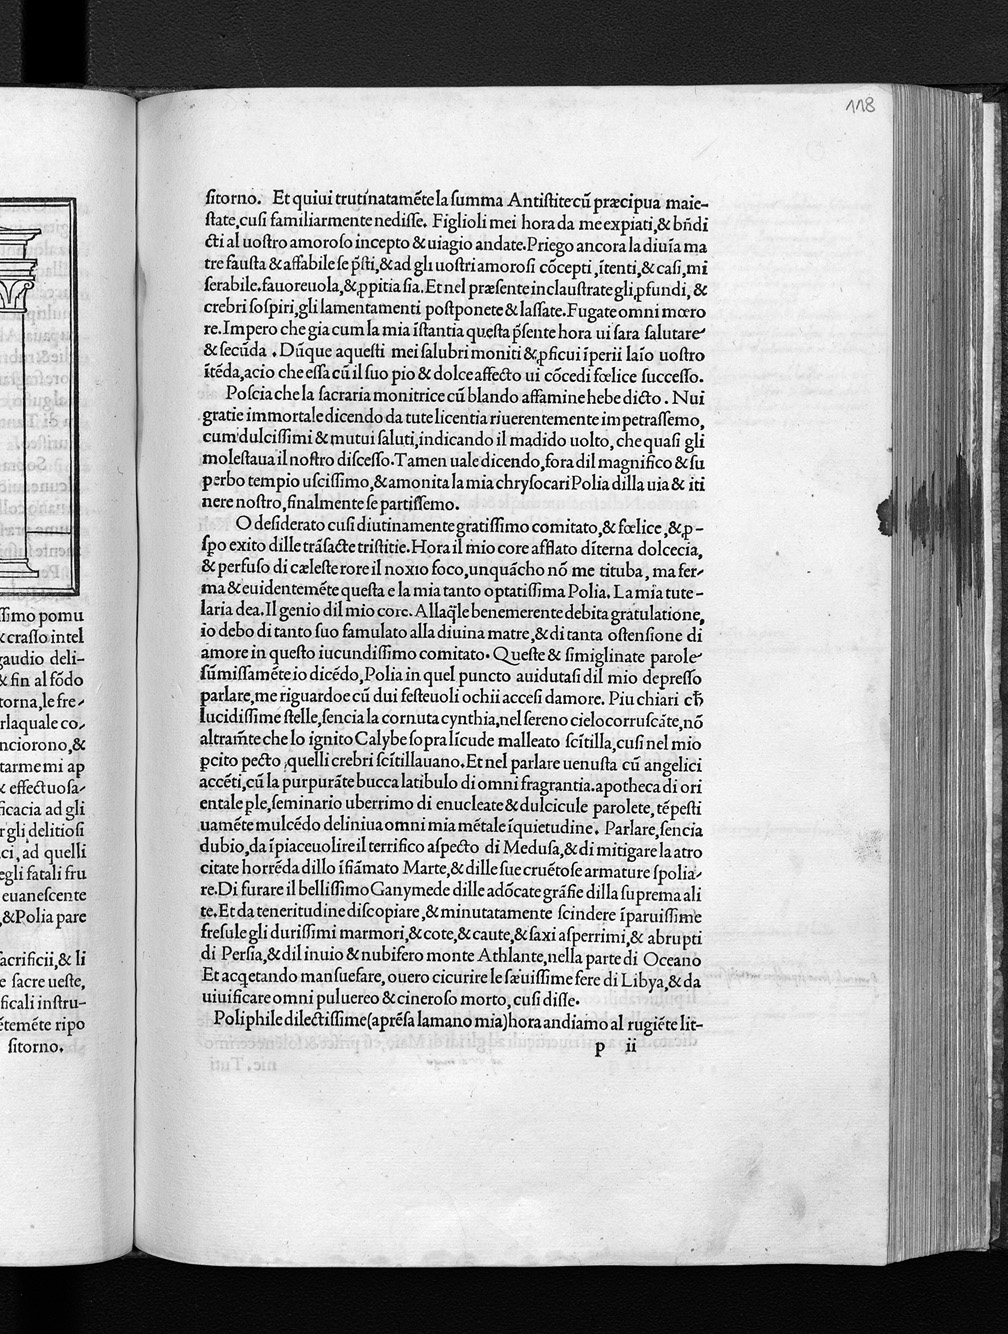 118
ſitorno. Et quiui trutinatamẽte la ſumma Antiſtite cũ præcipua maie-
ſtate, cuſi familiarmente ne diſſe. Figlioli mei hora da me expiati, & bñdi
cti al uoſtro amoroſo incepto & uiagio andate. Priego ancora la diuīa ma
tre fauſta & affabile ſe p̃ſti, & ad gli uoſtri amoroſi cõcepti, ītenti, & caſi, mi
ſerabile. fauoreuola, & ꝓpitia ſia. Et nel præſente inclauſtrate gli ꝓfundi, &
crebri ſoſpiri, gli lamentamenti poſtponete & laſſate. Fugate omni mœro
re. Impero che gia cum la mia īſtantia queſta p̃ſente hora ui ſara ſalutare
& ſecũda. Dũque a queſti mei ſalubri moniti & ꝓficui īperii laīo uoſtro
ītẽda, acio che eſſa cũ il ſuo pio & dolce affecto ui cõcedi fœlice ſucceſſo.
Poſcia che la ſacraria monitrice cũ blando affamine hebe dicto. Nui
gratie immortale dicendo da tute licentia riuerentemente impetraſſemo,
cum dulciſſimi & mutui ſaluti, indicando il madido uolto, che quaſi gli
moleſtaua il noſtro diſceſſo. Tamen uale dicendo, fora dil magnifico & ſu
perbo tempio uſciſſimo, & amonita la mia chryſocari Polia dilla uia & iti
nere noſtro, finalmente ſe partiſſemo.
O deſiderato cuſi diutinamente gratiſſimo comitato, & fœlice, & ꝓ-
ſꝑo exito dille trãſacte triſtitie. Hora il mio core afflato dīterna dolcecia,
& perfuſo di cæleſte rore il noxio foco, unquãcho nõ me tituba, ma fer-
ma & euidentemẽte queſta e la mia tanto optatiſſima Polia. La mia tute-
laria dea. Il genio dil mio core. Alla q̃le benemerente debita gratulatione,
io debo di tanto ſuo famulato alla diuina matre, & di tanta oſtenſione di
amore in queſto iucundiſſimo comitato. Queſte & ſimiglinate parole
ſũmiſſamẽte io dicẽdo, Polia in quel puncto auidutaſi dil mio depreſſo
parlare, me riguardoe cũ dui feſteuoli ochii acceſi damore. Piu chiari cħ
lucidiſſime ſtelle, ſencia la cornuta cynthia, nel ſereno cielo corruſcãte, nõ
altram̃te che lo ignito Calybe ſopra līcude malleato ſcītilla, cuſi nel mio
ꝑcito pecto, quelli crebri ſcītillauano. Et nel parlare uenuſta cũ angelici
accẽti, cũ la purpurãte bucca latibulo di omni fragrantia. apotheca di ori
entale ꝑle, ſeminario uberrimo di enucleate & dulcicule parolete, tẽpeſti
uamẽte mulcẽdo deliniua omni mia mẽtale īquietudine. Parlare, ſencia
dubio, da īpiaceuolire il terrifico aſpecto di Meduſa, & di mitigare la atro
citate horrẽda dillo īfiãmato Marte, & dille ſue cruẽtoſe armature ſpolia-
re. Di furare il belliſſimo Ganymede dille adõcate grãfie dilla ſuprema ali
te. Et da teneritudine diſcopiare, & minutatamente ſcindere īparuiſſime
freſule gli duriſſimi marmori, & cote, & caute, & ſaxi aſperrimi, & abrupti
di Perſia, & dil inuio & nubifero monte Athlante, nella parte di Oceano
Et acq̃etando manſuefare, ouero cicurire le ſæuiſſime fere di Libya, & da
uiuificare omni puluereo & cineroſo morto, cuſi diſſe.
Poliphile dilectiſſime (aprẽſa la mano mia) hora andiamo al rugiẽte lit-
p ii
ſſimo pomu
& craſſo intel
gaudio deli-
& fin al fõdo
torna, le fre-
rla quale co-
nciorono, &
tarme mi ap
& effectuoſa-
ficacia ad gli
r gli delitioſi
ci, ad quelli
egli fatali fru
euaneſcente
, & Polia pare
acrificii, & li
e ſacre ueſte,
ficali inſtru-
ẽtemẽte ripo
ſitorno.